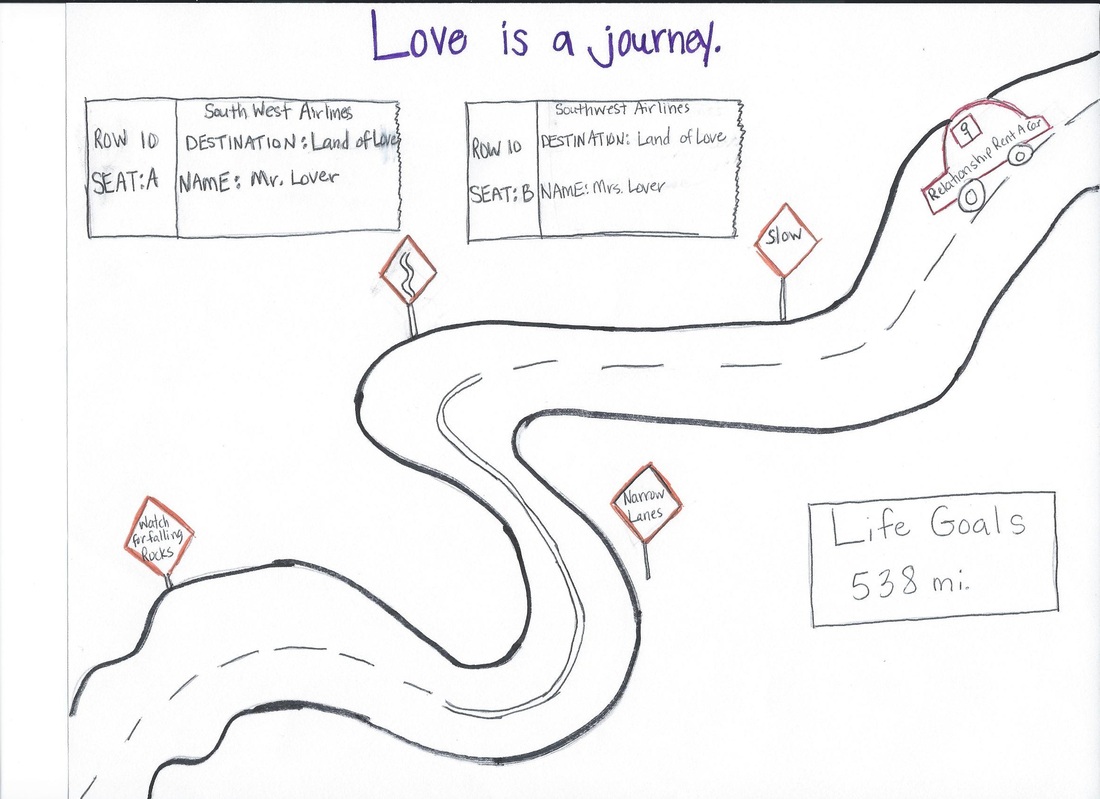 Love is a journey.
South West Airlines
ROW 10
DESTINATION: Land of Love
SEAT: A
NAME: Mr. Lover
Southwest Airlines
ROW 10
DESTINATION: Land of Love
SEAT: B
NAME: Mrs. Lover
9
Relationship Rent A Car
Slow
Narrow
Lanes
Watch
for falling
Rocks
Life Goals
538 mi.